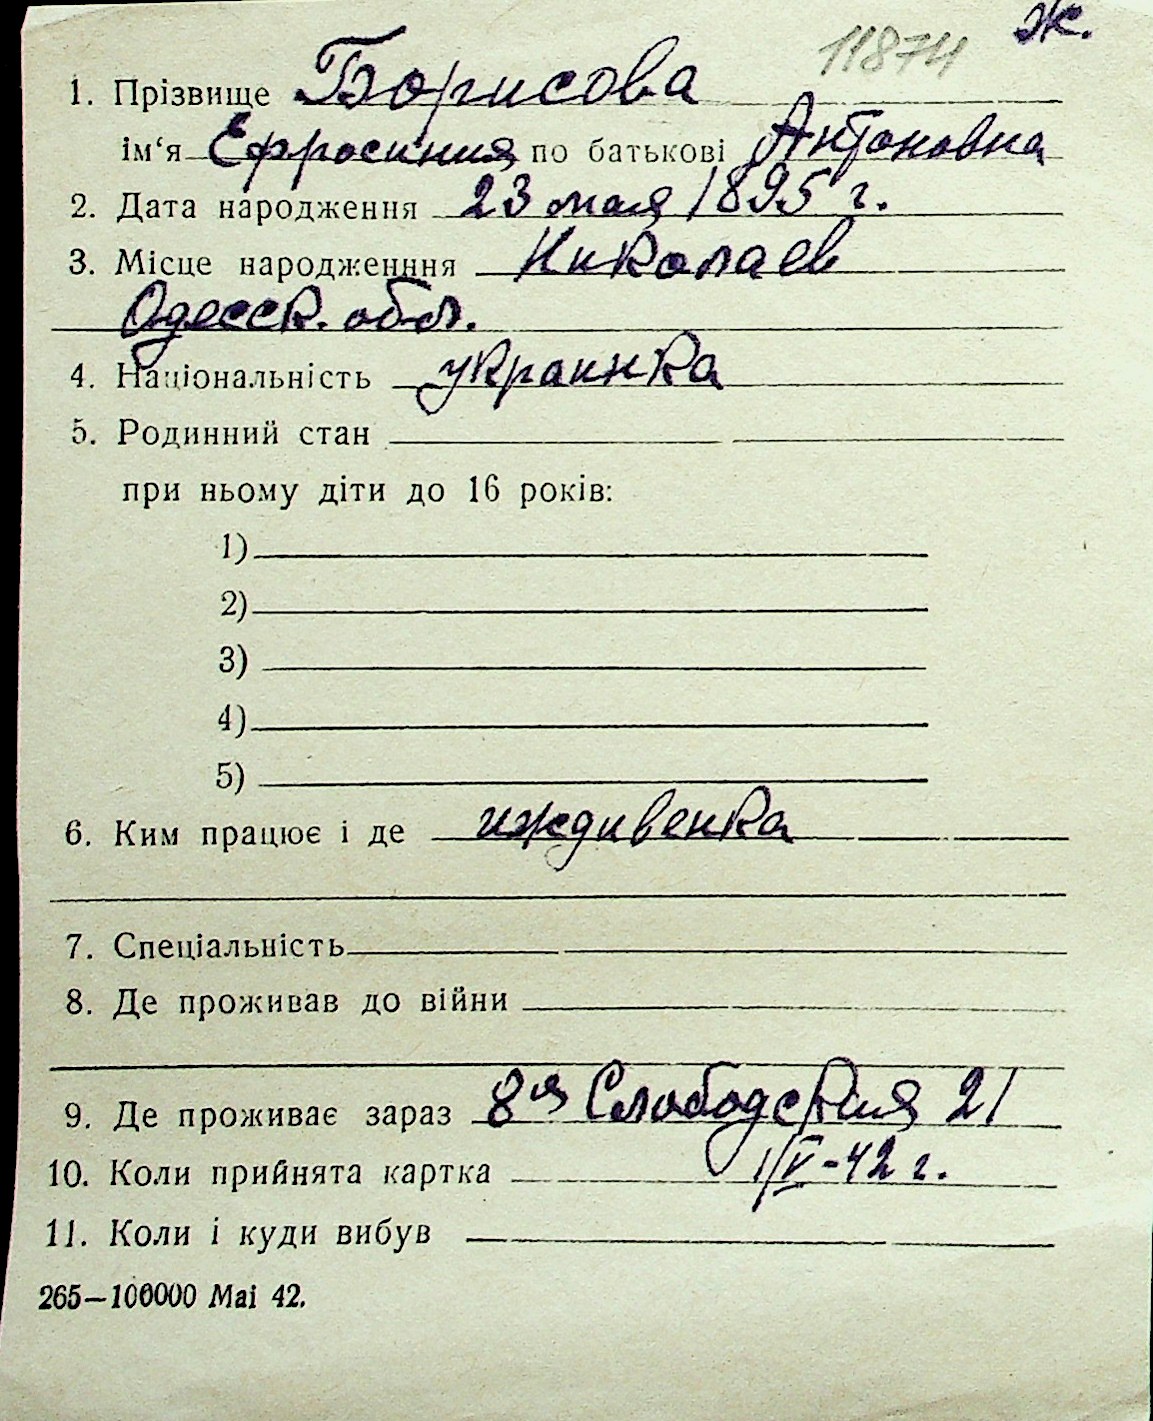 11874 Ж.
1. Прізвище Борисова
ім‘я Ефросиния по батькові Антоновна
2. Дата народження 23 мая 1895 г.
3. Місце народженння Николаев
Одесск. обл.
4. Національність украинка
5. Родинний стан
при ньому діти до 16 років:
1)
2)
3)
4)
5)
6. Ким працює і де иждивенка
7. Спеціальність
8. Де проживав до війни
9. Де проживає зараз 8ая Слободская 21
10. Коли прийнята картка 1/V-42 г.
11. Коли і куди вибув
265—100000 Mai 42.